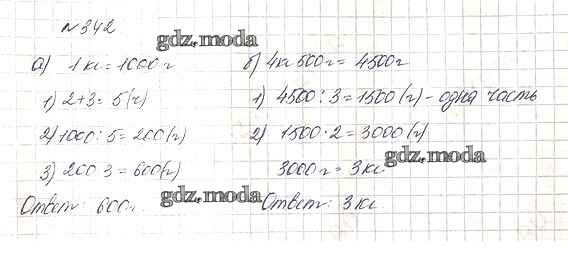 № 342
gdz.moda
а) 1 кг = 1000 г
1) 2+3 = 5 (ч)
2) 1000 : 5 = 200 (г)
3) 200 · 3 = 600 (г)
Ответ: 600 г.
gdz.moda
б) 4 кг 500 г = 4500 г
1) 4500 : 3 = 1500 (г) - одна часть
2) 1500 · 2 = 3000 (г)
3000 г = 3 кг
gdz.moda
Ответ: 3 кг